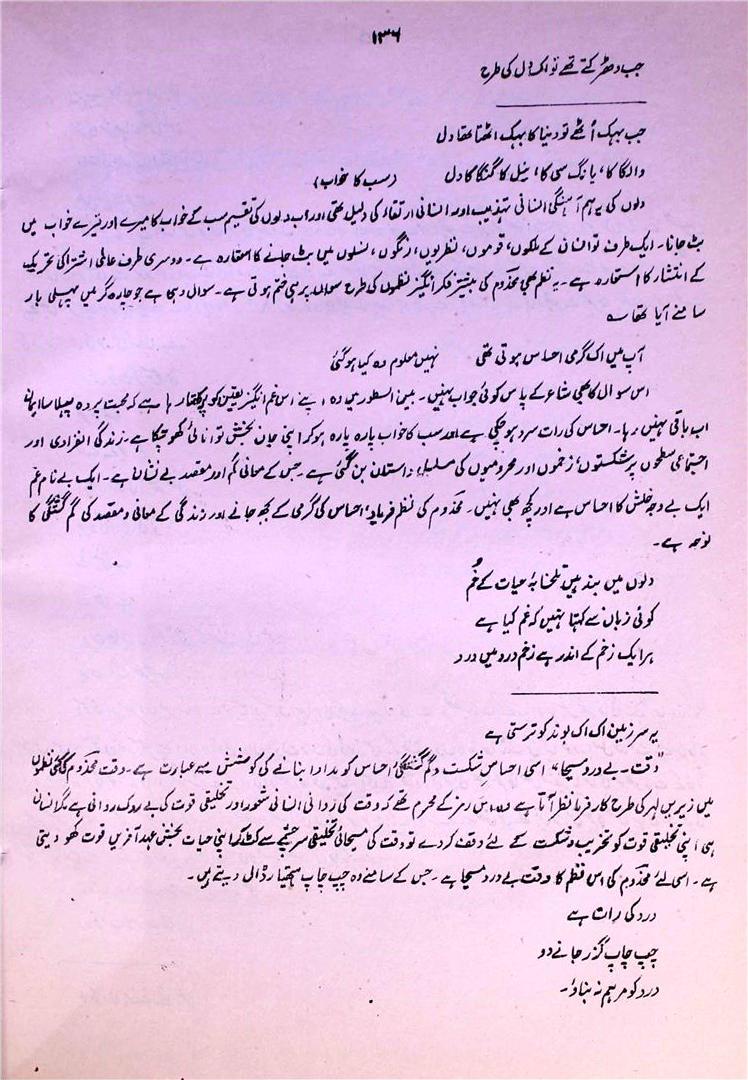 ۱۳۶
جب دھڑکتے تھے تو اک دل کی طرح
جب بہک اُٹھے تو دنیا کا بہک اٹھتا تھا دل
والگا کا، یانگ سی کا، نیل کا گنگا کا دل (سب کا خواب)
دلوں کی یہ ہم آہنگی انسانی تہذیب اور انسانی ارتقاء کی دلیل تھی اور اب دلوں کی تقسیم سب کے خواب کا میرے اور تیرے خواب میں
بٹ جانا۔ ایک طرف تو انسان کے ملکوں، قوموں، نظریوں، رنگوں، نسلوں میں بٹ جانے کا استعارہ ہے۔ دوسری طرف عالمی اشتراکی تحریک
کے انتشار کا استعارہ ہے۔ یہ نظم بھی مخدوم کی بیشتر فکر انگیز نظموں کی طرح سوال پر ہی ختم ہوتی ہے۔ سوال وہی ہے جو چارہ گر میں پہلی بار
سامنے آیا تھا ؎
آپ میں اک گرمی احساس ہوتی تھی نہیں معلوم وہ کیا ہو گئی
اس سوال کا بھی شاعر کے پاس کوئی جواب نہیں۔ بین السطور میں وہ اپنے اس غم انگیز یقین کو رہا ہے کہ محبت پر وہ پہلا سا ایمان
اب باقی نہیں رہا۔ احساس کی رات سرد ہو چکی ہے اور سب کا خواب پارہ پارہ ہو کر اپنی جان بخش توانائی کھو چکا ہے۔ زندگی انفرادی اور
اجتماعی سطحوں پر شکستوں، زخموں اور محرومیوں کی مسلسل داستان بن گئی ہے۔ جس کے معانی گم اور مقصد بے نشان ہے۔ ایک بے نام غم
ایک بے وجہ خلش کا احساس ہے اور کچھ بھی نہیں۔ مخدوم کی نظم فرہاد، احساس کی گرمی کے بجھ جانے اور زندگی کے معانی و مقصد کی گم گشتگی کا
نوحہ ہے۔
دلوں میں بند ہیں تلخابۂ حیات کے خُم
کوئی زبان سے کہتا نہیں کہ غم کیا ہے
ہر ایک زخم کے اندر ہے زخم درد میں درد
یہ سرزمین اک اک بوند کو ترستی ہے
"وقت۔ بے درد مسیحا" اسی احساسِ شکست و گم گشتگئ احساس کو مداوا بنانے کی کوشش سے عبارت ہے۔ وقت مخدوم کی کئی نظموں
میں زیریں لہر کی طرح کارفرما نظر آتا ہے وہ اس رمز کے محرم تھے کہ وقت کی روانی انسانی شعور اور تخلیقی قوت کی بے روک روانی ہے مگر انسان
ہی اپنی تخلیقی قوت کو تخریب و شکست کے لئے وقف کر دے تو وقت کی مسیحائی تخلیقی سرچشمے سے کٹ کر اپنی حیات بخش عہد آفریں قوت کھو دیتی
ہے۔ اسی لئے مخدوم کی اس نظم کا وقت بے درد مسیحا ہے۔ جس کے سامنے وہ چپ چاپ ہتھیار ڈال دیتے ہیں۔
درد کی رات ہے
چپ چاپ گزر جانے دو
درد کو مرہم نہ بناؤ۔